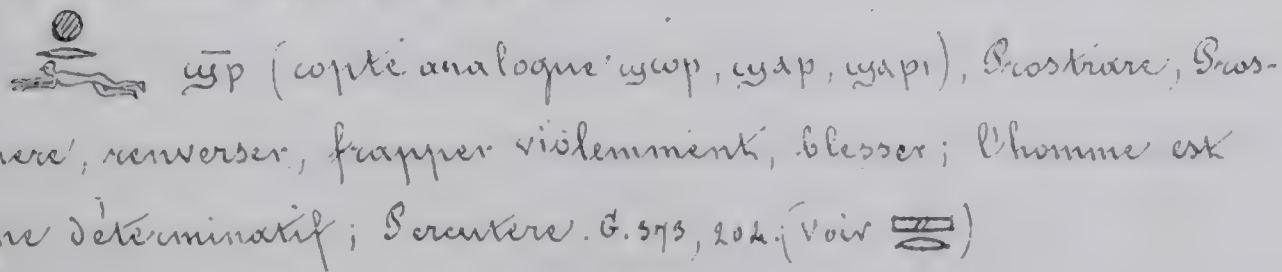 𓐍𓂋 ϣ̄ρ (copte analogue ϣωρ, ϣαρ, ϣαρι), Prostrare, Pros-
nere, renverser, frapper violemment, blesser; l'homme est
ne déterminatif; Percutere. G. 373, 204. (Voir 𓈙𓂋)